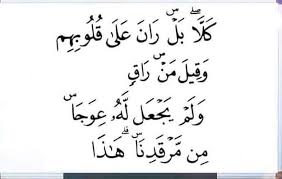 كَلَّاۖ بَلْۜ رَانَ عَلَىٰ قُلُوبِهِم
وَقِيلَ مَنْۜ رَاقٍ
وَلَمْ يَجْعَل لَّهُۥ عِوَجَاۜ
مِن مَّرْقَدِنَاۜۗ هَٰذَا